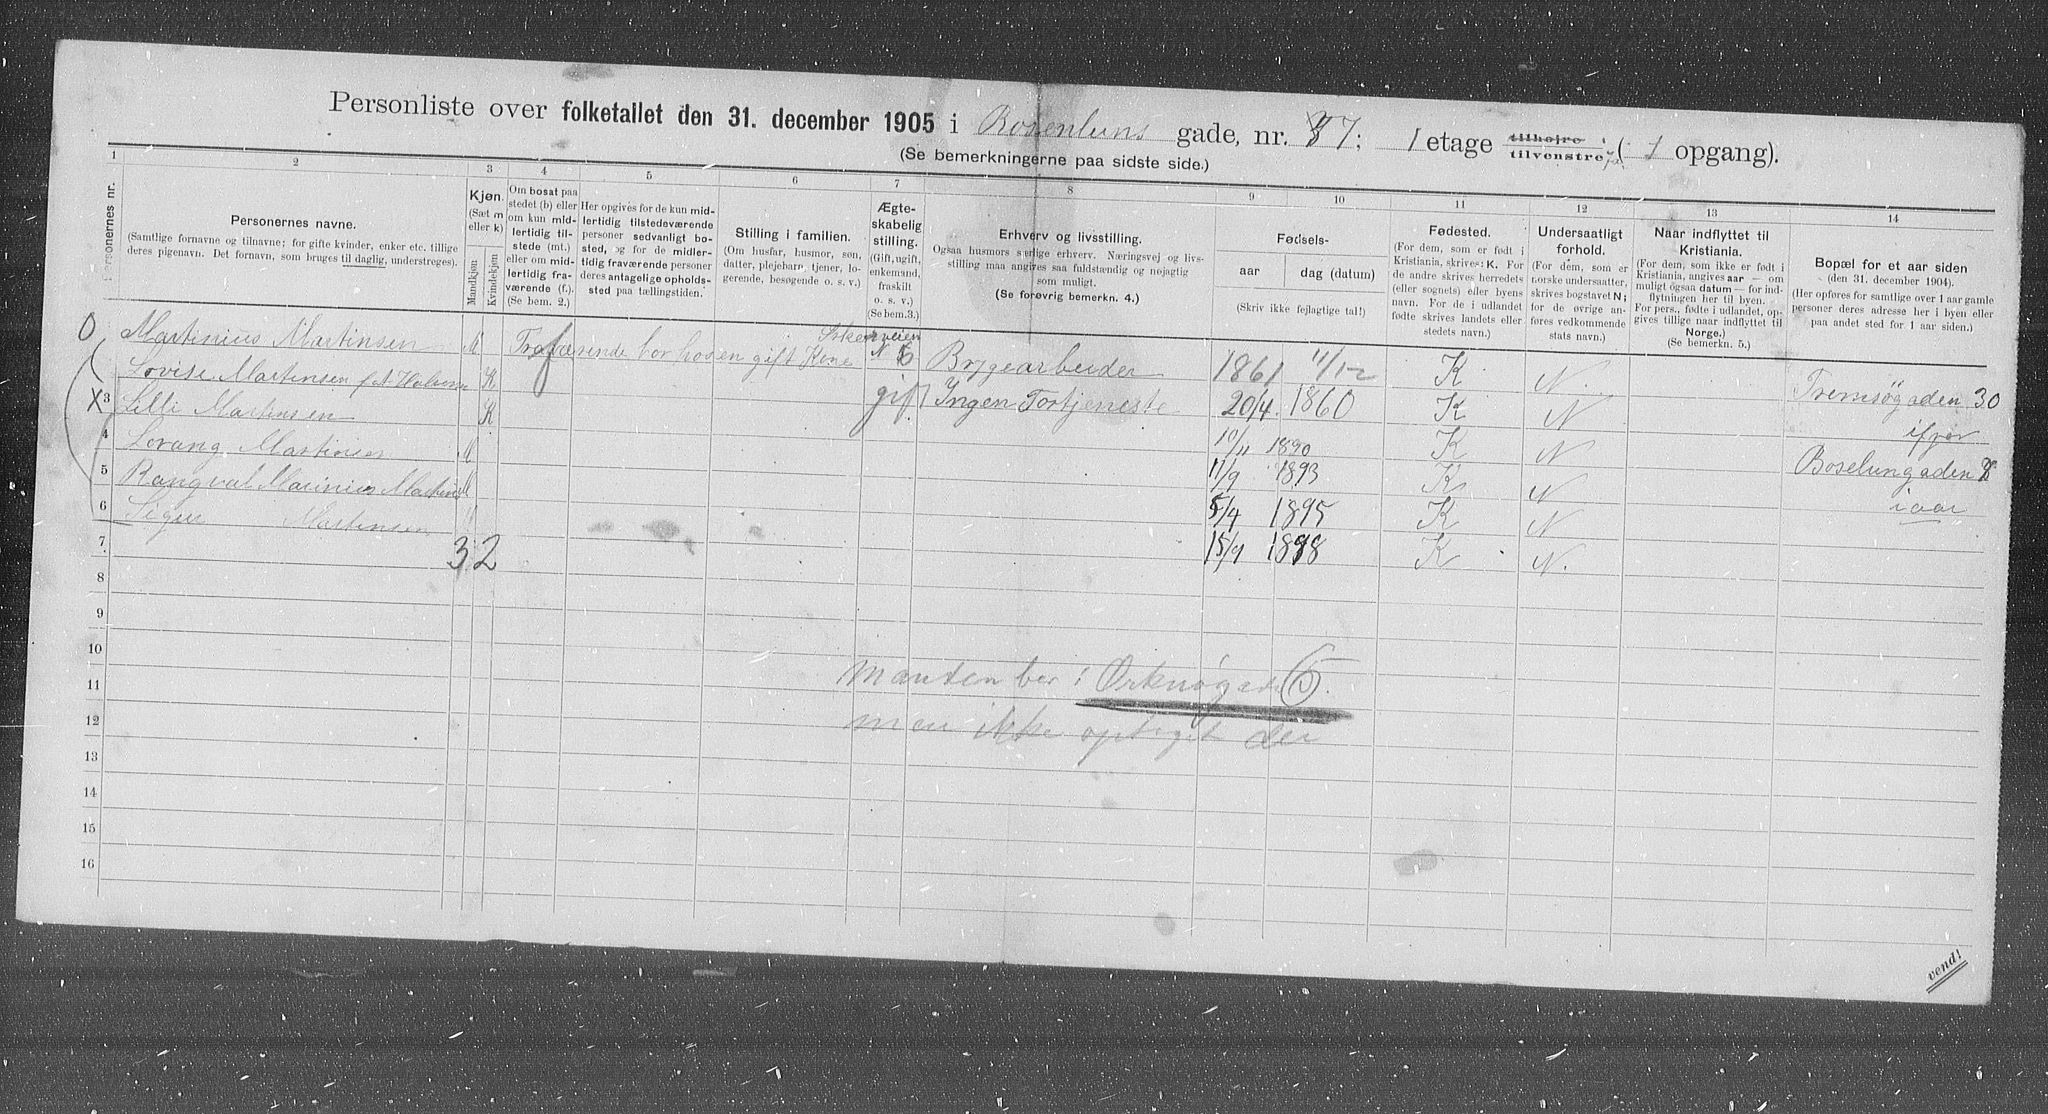 Personliste over folketallet den 31. december 1905 i Rosenluns gade, nr. 7; 1 etage tilhøjre tilvenstre (1 opgang).
(Se bemerkningerne paa sidste side.)
1 2 3 4 5 6 7 8 9 10 11 12 13 14
Personernes nr.
Personernes navne.
(Samtlige fornavne og tilnavne; for gifte kvinder, enker etc. tillige deres pigenavn. Det fornavn, som bruges til daglig, understreges).
Kjøn.
(Sæt m eller k)
Mandkjøn
Kvindekjøn
Om bosat paa stedet (b) eller om kun midlertidig tilstede (mt.) eller om midlertidig fraværende (f.). (Se bem. 2.)
Her opgives for de kun midlertidig tilstedeværende personer sedvanligt bosted, og for de midlertidig fraværende personer deres antagelige opholdssted paa tællingstiden.
Stilling i familien.
(Om husfar, husmor, søn, datter, plejebarn, tjener, logerende, besøgende o. s. v.)
Ægteskabelig stilling.
(Gift, ugift, enkemand, fraskilt o. s. v.)
(Se bem.3.)
Erhverv og livsstilling.
Ogsaa husmors særlige erhverv. Næringsvej og livsstilling maa angives saa fuldstændig og nøjagtig som muligt.
(Se forøvrig bemerkn. 4.)
Fødsels-
aar dag (datum)
(Skriv ikke fejlagtige tal!)
Fødested.
(For dem, som er født i Kristiania, skrives: K. For de andre skrives herredets (eller sognets) eller byens navn. For de i udlandet fødte skrives landets eller stedets navn.)
Undersaatligt forhold.
(For dem, som er norske undersaatter, skrives bogstavet N; for de øvrige anføres vedkommende stats navn).
Naar indflyttet til Kristiania.
(For dem, som ikke er født i Kristiania, angives aar — om muligt ogsaa datum — for indflytningen her til byen. For pers., fødte i udlandet, opgives tillige naar indflyttet til Norge.)
(Se bemerkn. 5.)
Bopæl for et aar siden
(den 31. december 1904).
(Her opføres for samtlige over 1 aar gamle personer deres adresse her i byen eller paa andet sted for 1 aar siden.)
0 Martinius Martinsen M f bor hos en gift Kone N 6 Brygearbeider 1861 11/12 K N. Tremsögaden 30
Lovise Martensen f. K gift Ingen Fortjeneste 20/4. 1860 K N ifjor
X 3 Lilli Martensen K 10/11 1890 K N Boselungaden
4 Lorang Martinsen M 11/9 1893 K N i aar
5 Rangval Marinius Martins M 5/4 1895 K N
6 Sigur Martensen M 15/9 1898 K N.
7 3 2
8
9
10
11 Manden bor i Orknøgade 6.
12 men ikke optaget der
13
14
15
16
vend!